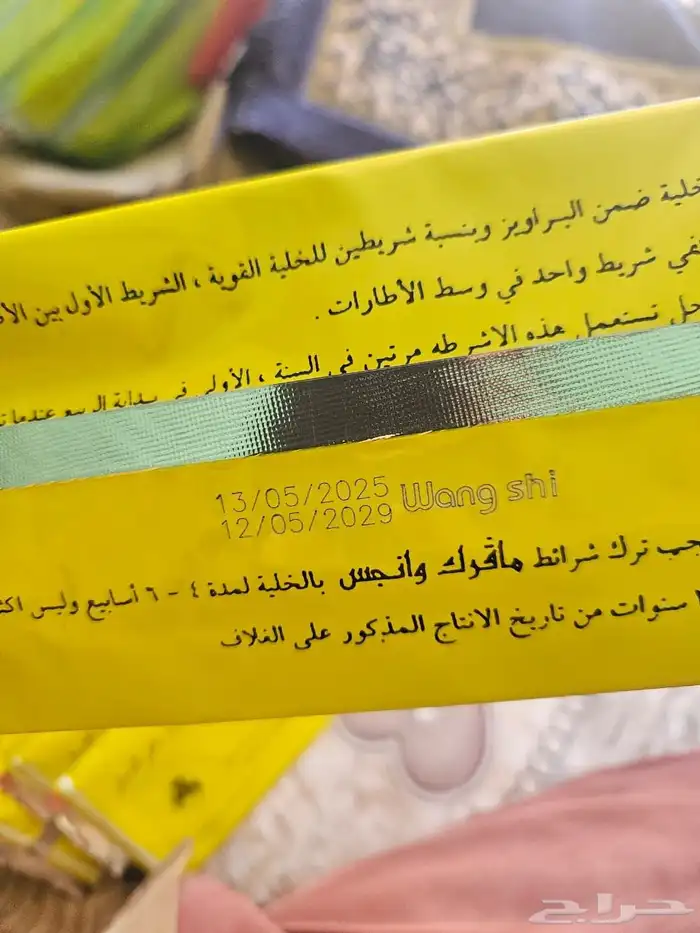 خلية ضمن البراويز وبنسبة شريطين للخلية القوية ، الشريط الأول بين
شريط واحد في وسط الأطارات .
تستعمل هذه الاشرطه مرتين في السنة ، الأولى في بداية الربيع
13/05/2025 Wang shi
12/05/2029
ترك شرائط مافرك وانجس بالخلية لمدة ٤ - ٦ أسابيع وليس
سنوات من تاريخ الانتاج المذكور على الغلاف
حراج